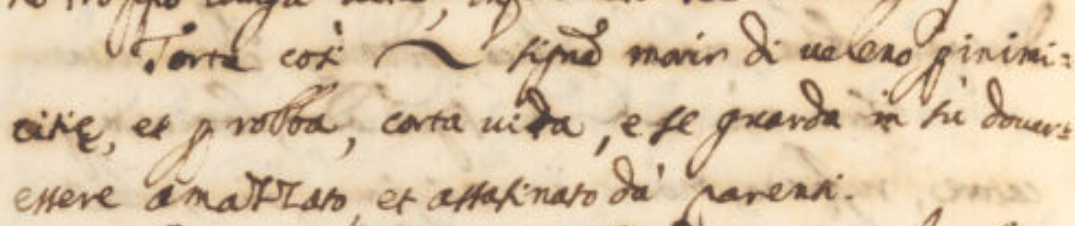 Torta così ~ signa morir di ueleno p inimi:
citie, et p robba, corta uita, e se guarda in sù douer:
essere amazzato, et assasinato da' parenti.